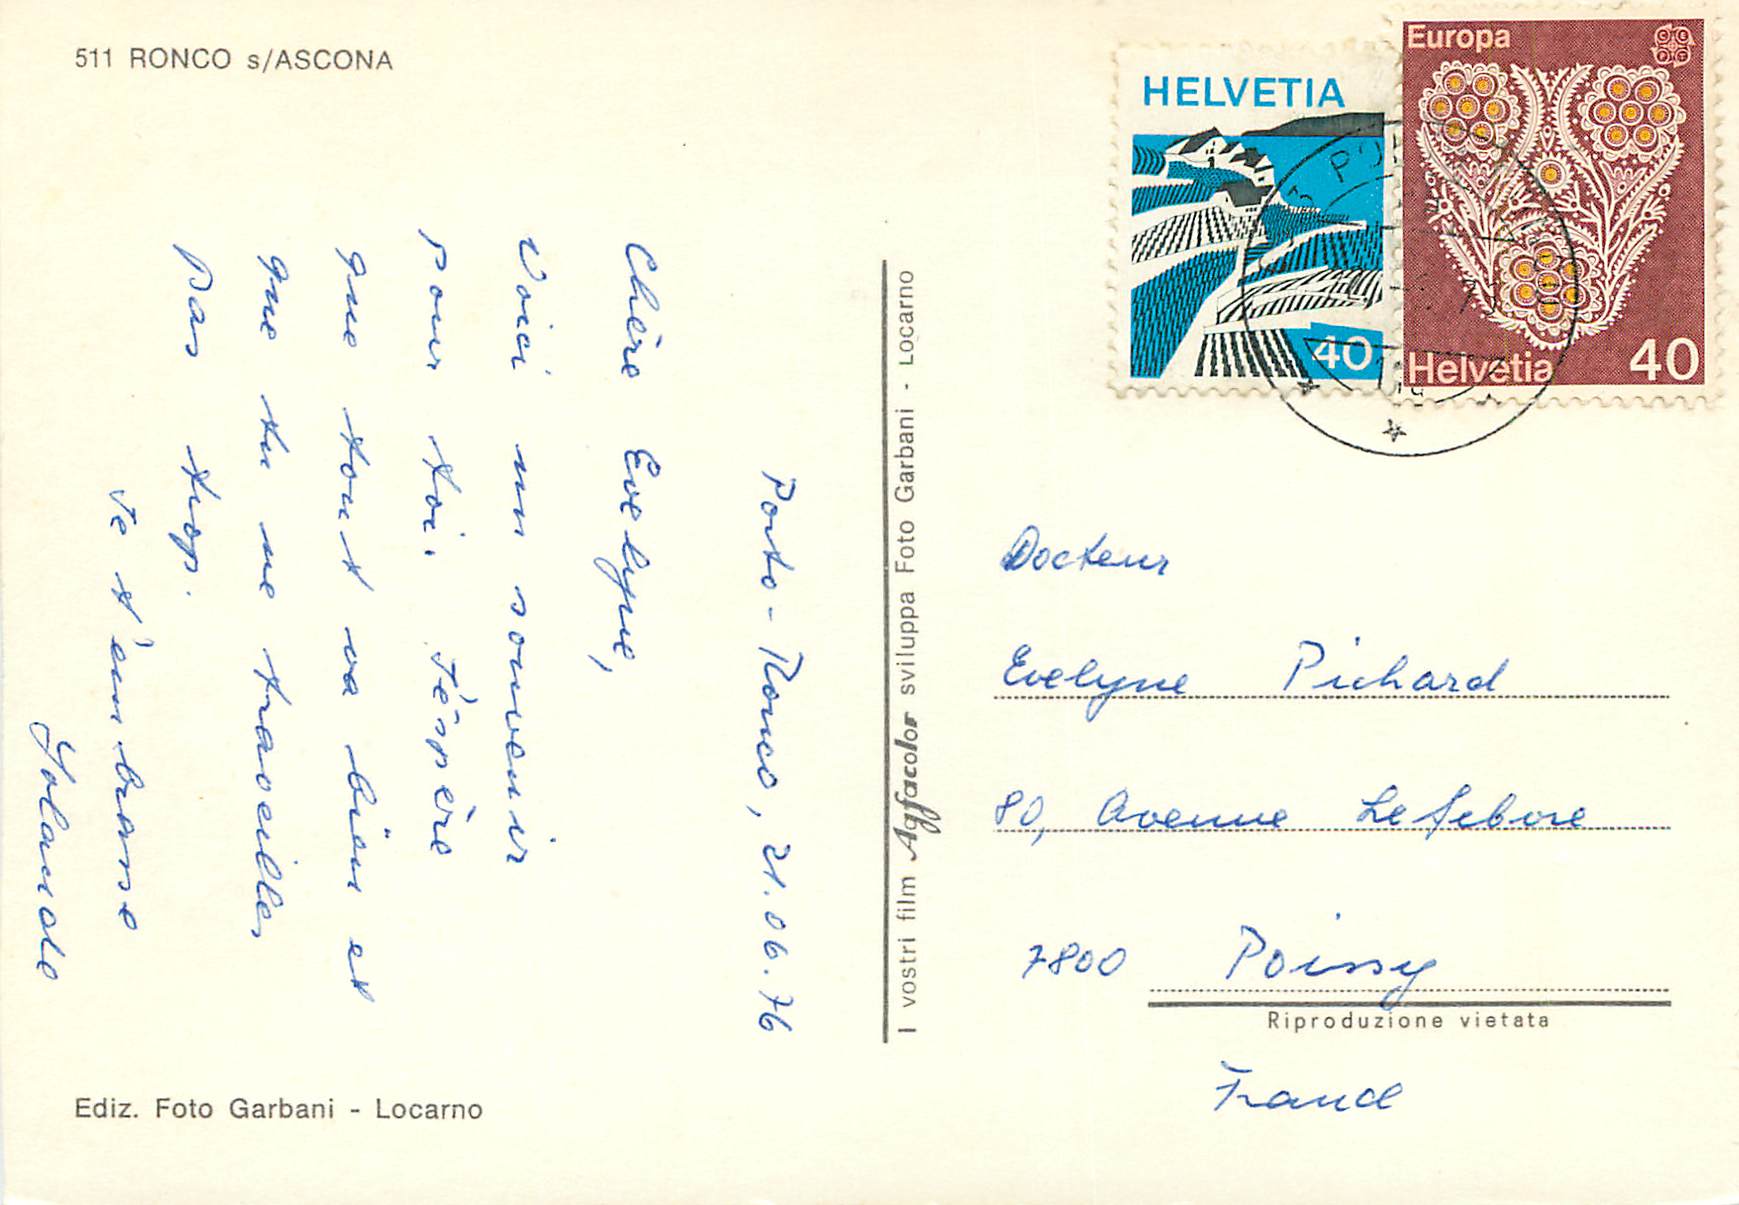 511 RONCO s/ASCONA
Porto-Ronco, 21.06.76
Chère Evelyne,
Voici un souvenir
pour toi. J'éspère
que tout va bien et
que tu ne travailles
pas trop.
Je t'embrasse
Yolande
Ediz. Foto Garbani - Locarno
I vostri film Agfacolor sviluppa Foto Garbani - Locarno
HELVETIA
40
Europa
Helvetia 40
Docteur
Evelyne Pichard
80, Avenue Lefebvre
7800 Poissy
Riproduzione vietata
France